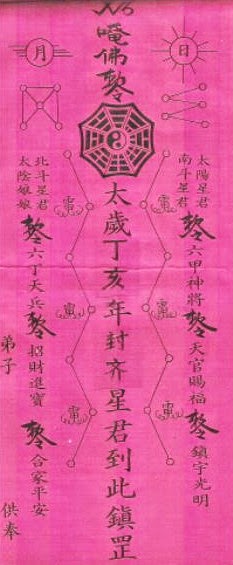 唵佛敕令
太歲丁亥年封齐星君到此鎮罡
日
太陽星君
南斗星君
敕令六甲神將
敕令天官賜福
敕令鎮宇光明
月
北斗星君
太陰娘娘
敕令六丁天兵
敕令招財進寶
敕令合家平安
弟子
供奉